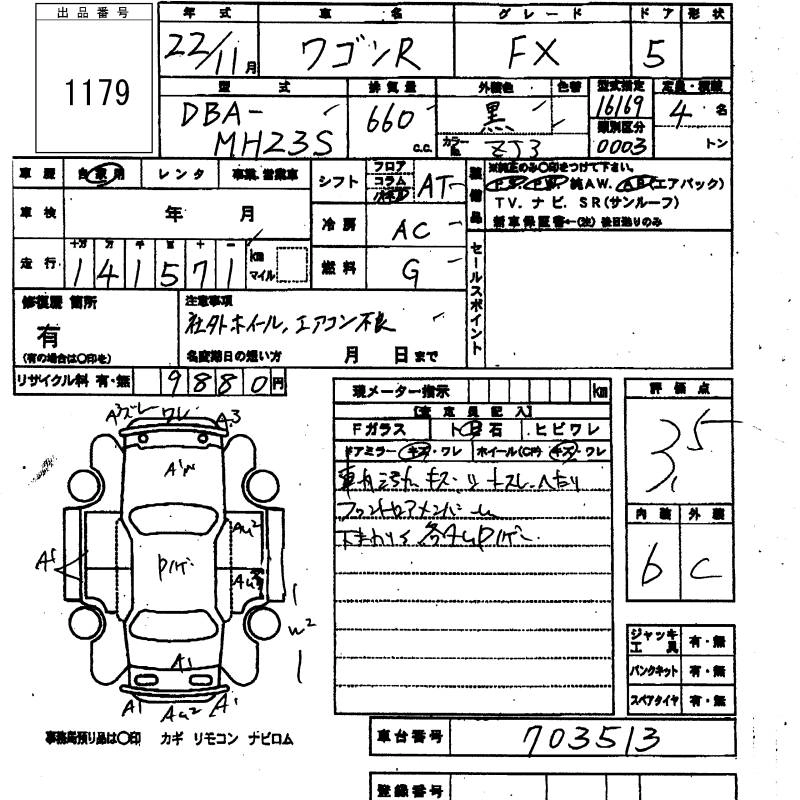 出品番号
1179
年式 車名 グレード ドア 形状
22/11月 ワゴンR FX 5
型式 排気量 外装色 色替 型式指定 定員・積載
DBA-MH23S 660 c.c. 黒 16169 4名
カラーNo. ZJ3 類別区分 0003 トン
車歴 自家用 レンタ 事業.営業車
シフト フロア コラム AT
装備品 ※純正のみ○印をつけて下さい。
P.S. P.W. 純AW. AB(エアバック)
TV. ナビ. SR(サンルーフ)
新車保証書←(次)後日送りのみ
車検 年 月
冷房 AC
走行 十万 万 千 百 十 一
141571 km マイル
燃料 G
セールスポイント
修復歴 箇所
有
(有の場合は○印を)
注意事項
社外ホイール、エアコン不良
名変期日の短い方 月 日まで
リサイクル料 有・無 9880円
現メーター指示 km
【査定員記入】
Fガラス 石 ヒビワレ
ドアミラー キズ・ワレ ホイール(CP) キズ・ワレ
評価点
3.5
内装 外装
b C
A3 ズレ ワレ A3
A1
AU2
A1
AU2
W2
A1
A1 AU2 A1
ジャッキ 工具 有・無
パンクキット 有・無
スペアタイヤ 有・無
事務局預り品は○印 カギ リモコン ナビロム
車台番号 703513
登録番号